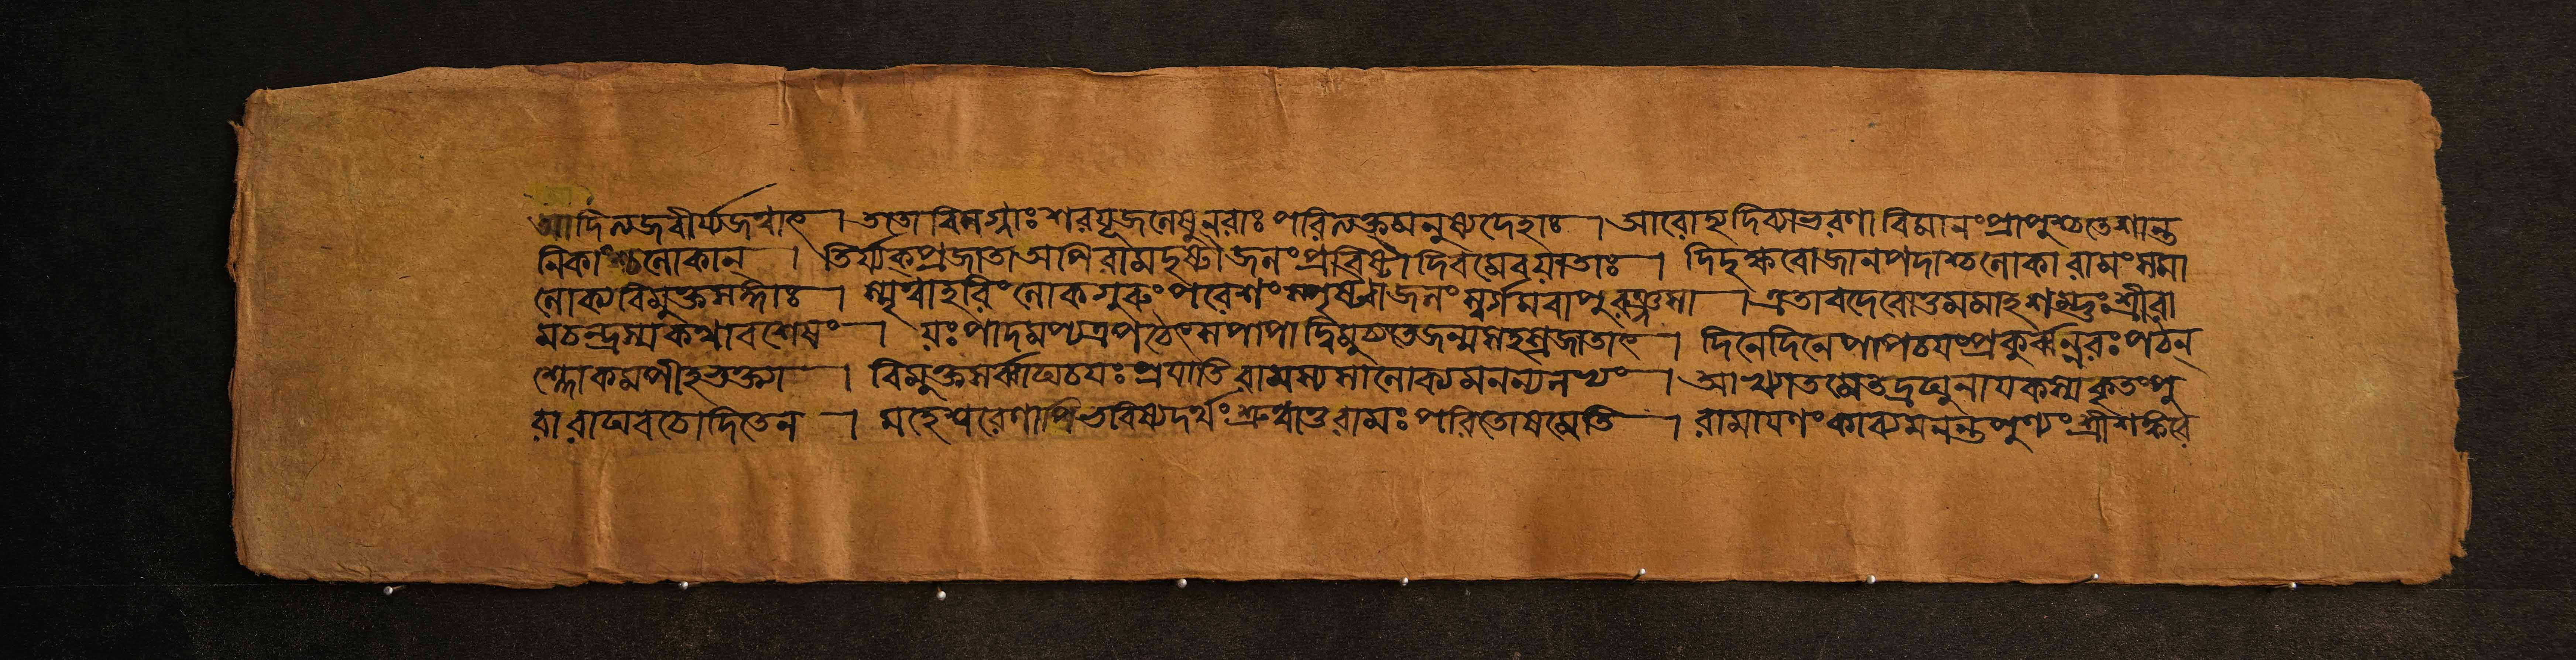 আদিনজবীর্য্যজবাৎ । ততো বিমগ্নাঃ শরযূজলেষু নরাঃ পরিত্যক্তমনুষ্যদেহাঃ । আরোহ্য দিব্যাভরণা বিমানং প্রাপুশ্চ তে শান্ত
নিকাংশ্চ লোকান্ । তির্য্যক্প্রজাতা অপি রামদৃষ্টা জলং প্রবিষ্টা দিবমেব যাতাঃ । দিদৃক্ষবো জানপদাশ্চ লোকা রামং সমা
লোক্য বিমুক্তসঙ্গাঃ । স্মৃত্বা হরিং লোকগুরুং পরেশং স্পৃষ্ট্বা জলং স্বর্গমবাপুরঞ্জসা । এতাবদেবোত্তমমাহ শম্ভুঃ শ্রীরা
মচন্দ্রস্য কথাবশেষং । যঃ পাদমপ্যত্র পঠেৎ স পাপাদ্বিমুচ্যতে জন্মসহস্রজাতাৎ । দিনে দিনে পাপচয়ং প্রকুর্ব্বন্নরঃ পঠন্
শ্লোকমপীহ ভক্ত্যা । বিমুক্তসর্ব্বাঘচয়ঃ প্রযাতি রামস্য সালোক্যমনন্যলভ্যং । আখ্যাতমেতদ্রঘুনায়কস্য কৃতং পু
রা রাঘবচোদিতেন । মহেশ্বরেণাপি ভবিষ্যদর্থং শ্রুত্বা তু রামঃ পরিতোষমেতি । রামায়ণং কাব্যমনন্তপুণ্যং শ্রীশঙ্করে